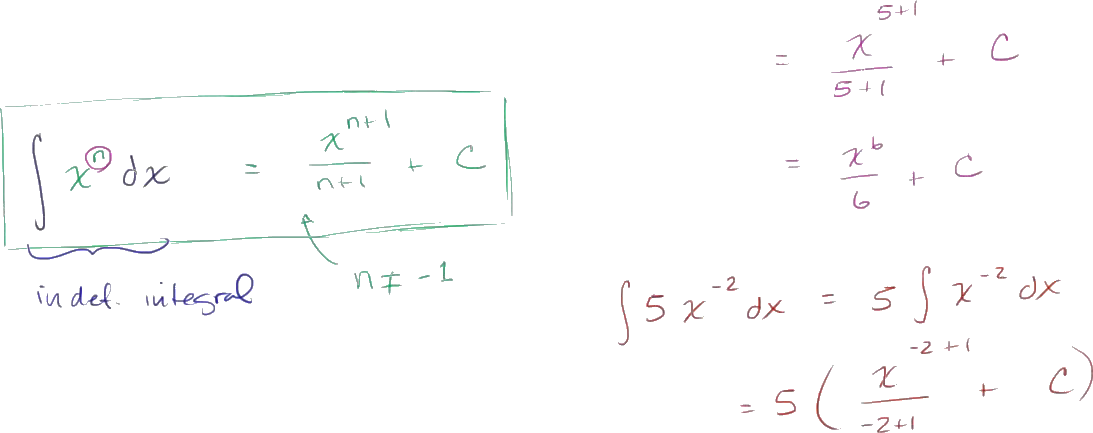 ∫ xⁿ dx = xⁿ⁺¹/(n+1) + C
n ≠ -1
indef. integral
= x⁵⁺¹/(5+1) + C
= x⁶/6 + C
∫ 5 x⁻² dx = 5 ∫ x⁻² dx
= 5 ( x⁻²⁺¹/(-2+1) + C )